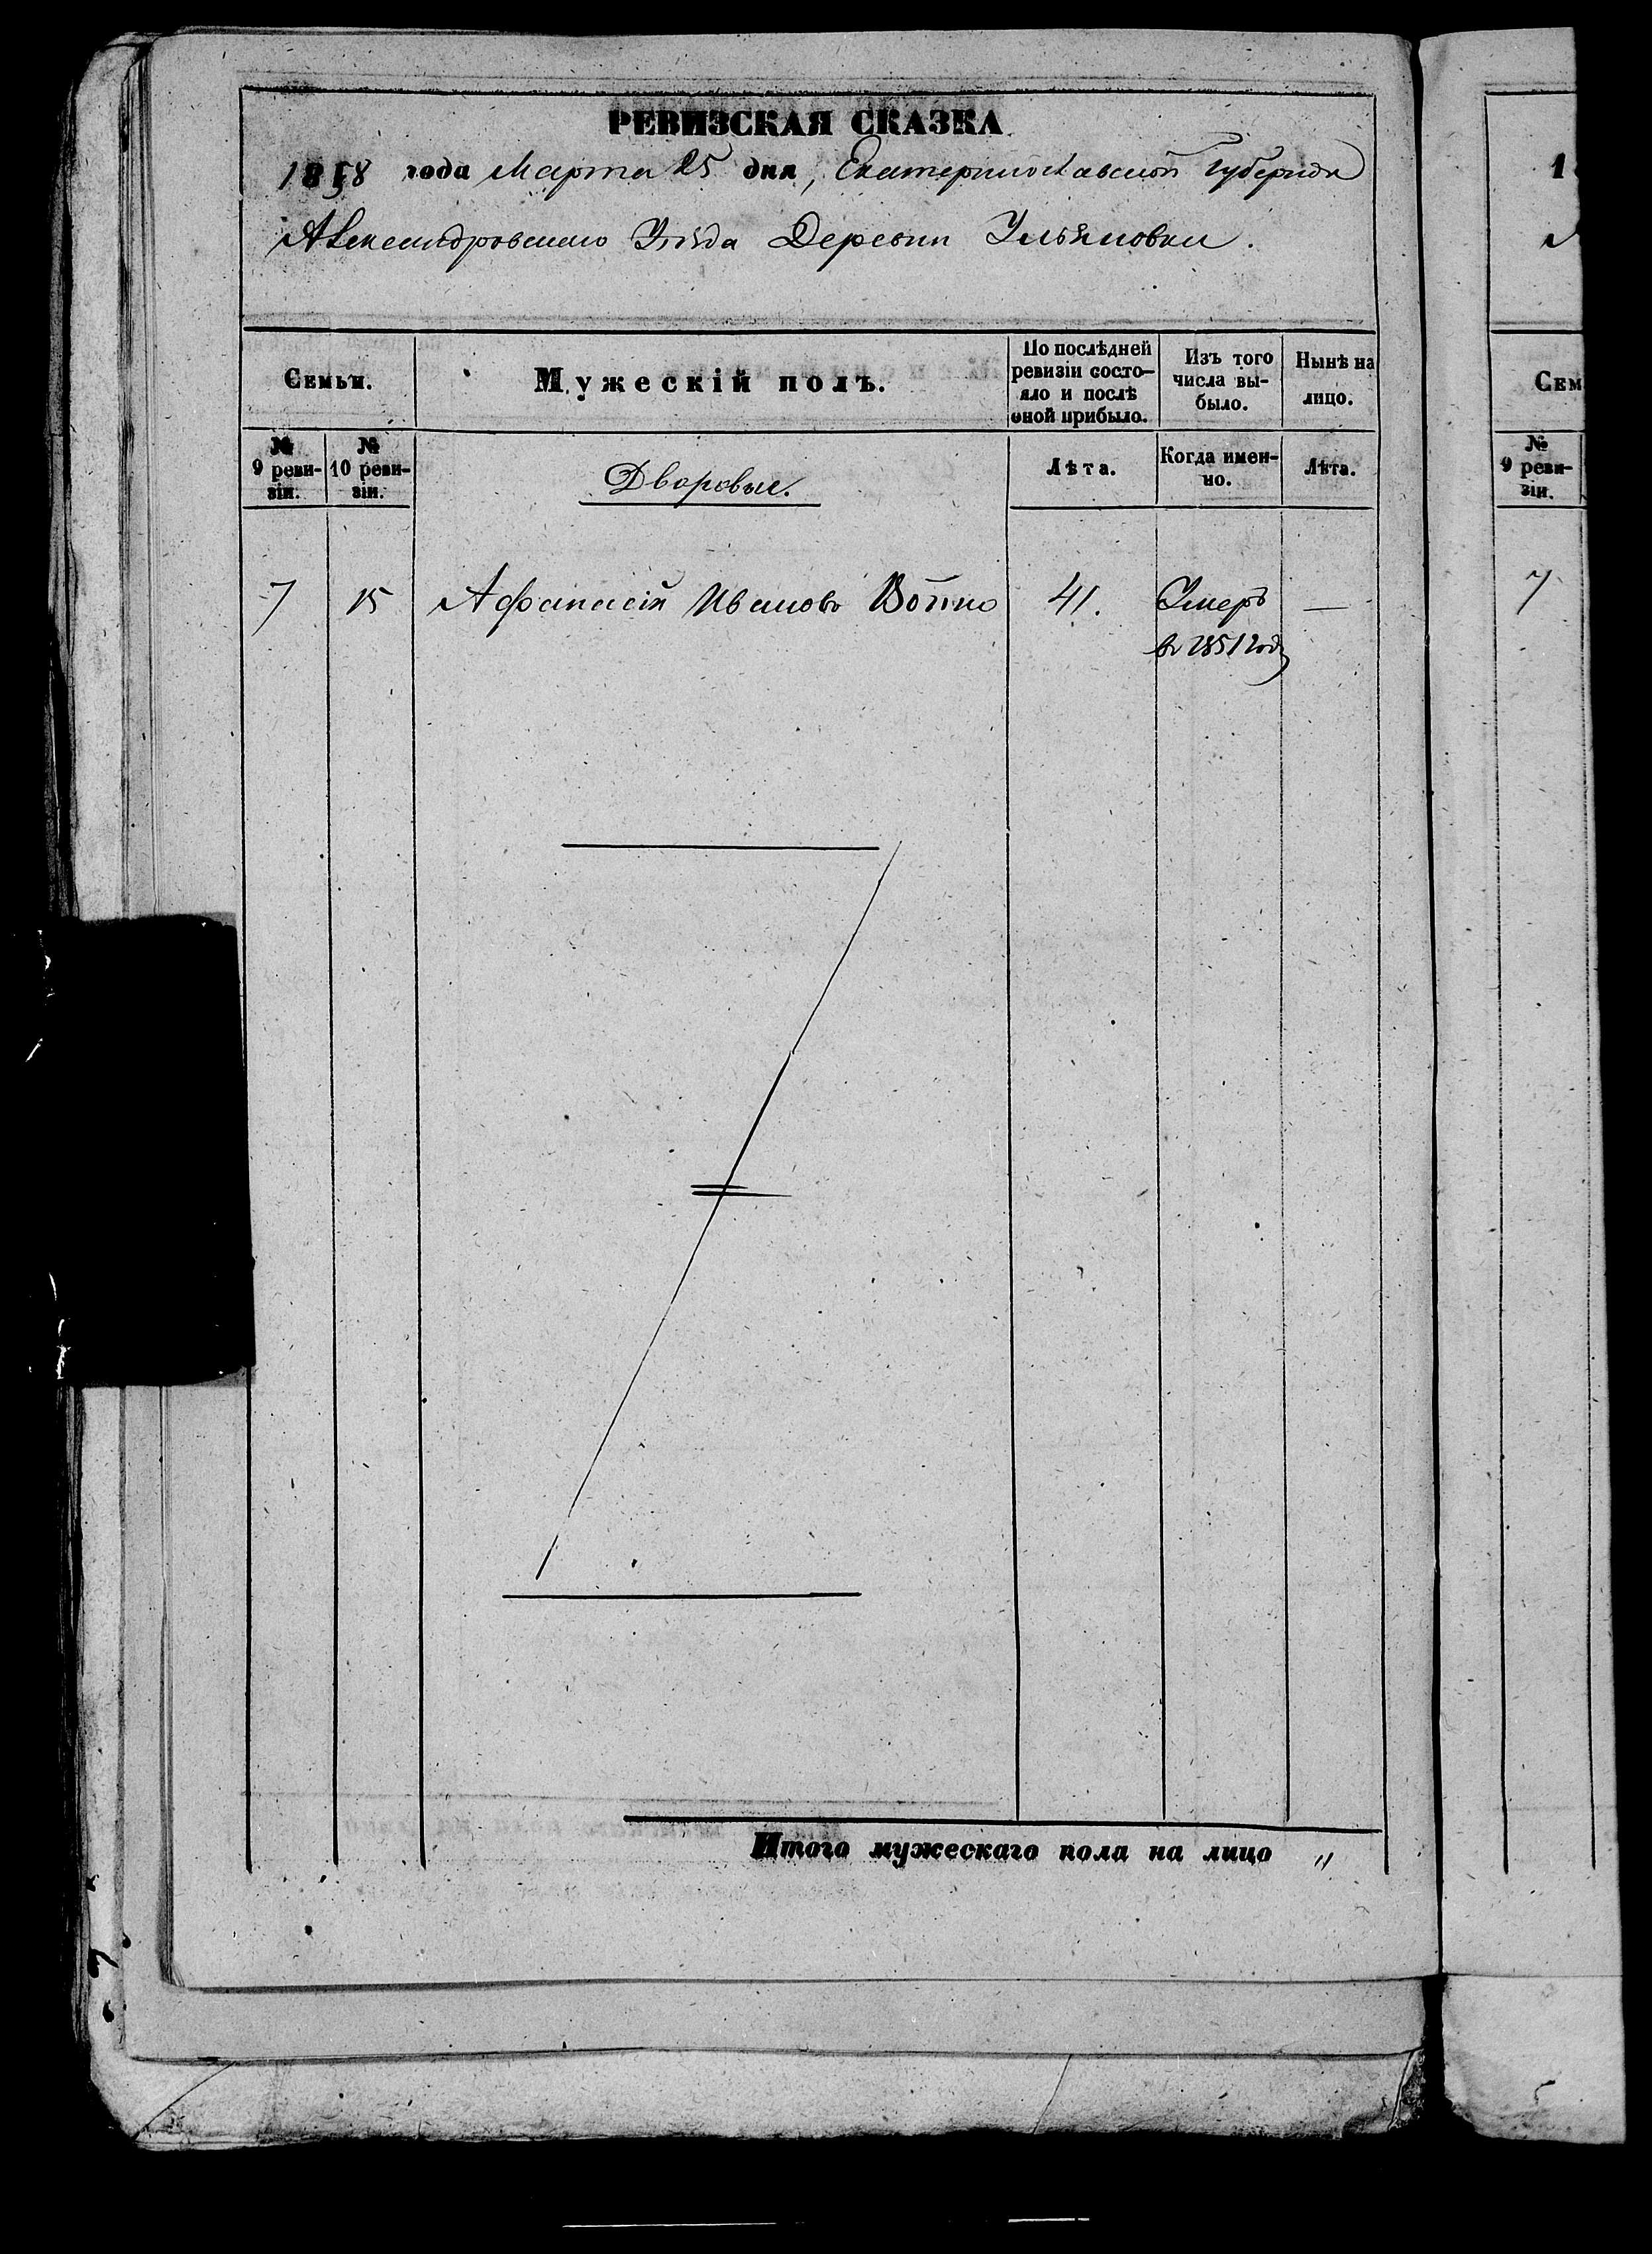 РЕВИЗСКАЯ СКАЗКА
1858 года Марта 25 дня, Екатеринославской Губернiи
Александровскаго Уѣзда Деревни Ульяновки.
Семьи.
Мужескій полъ.
По послѣдней ревизіи состо-
яло и послѣ
оной прибыло.
Изъ того
числа вы-
было.
Нынѣ на
лицо.
№
9 реви-
зіи.
№
10 реви-
зіи.
Дворовые.
Лѣта.
Когда имен-
но.
Лѣта.
7 15 Афанасій Ивановъ 41. Умеръ —
въ 1851 году
Итого мужескаго пола на лицо "
1
Сем
№
9 реви-
зіи.
7